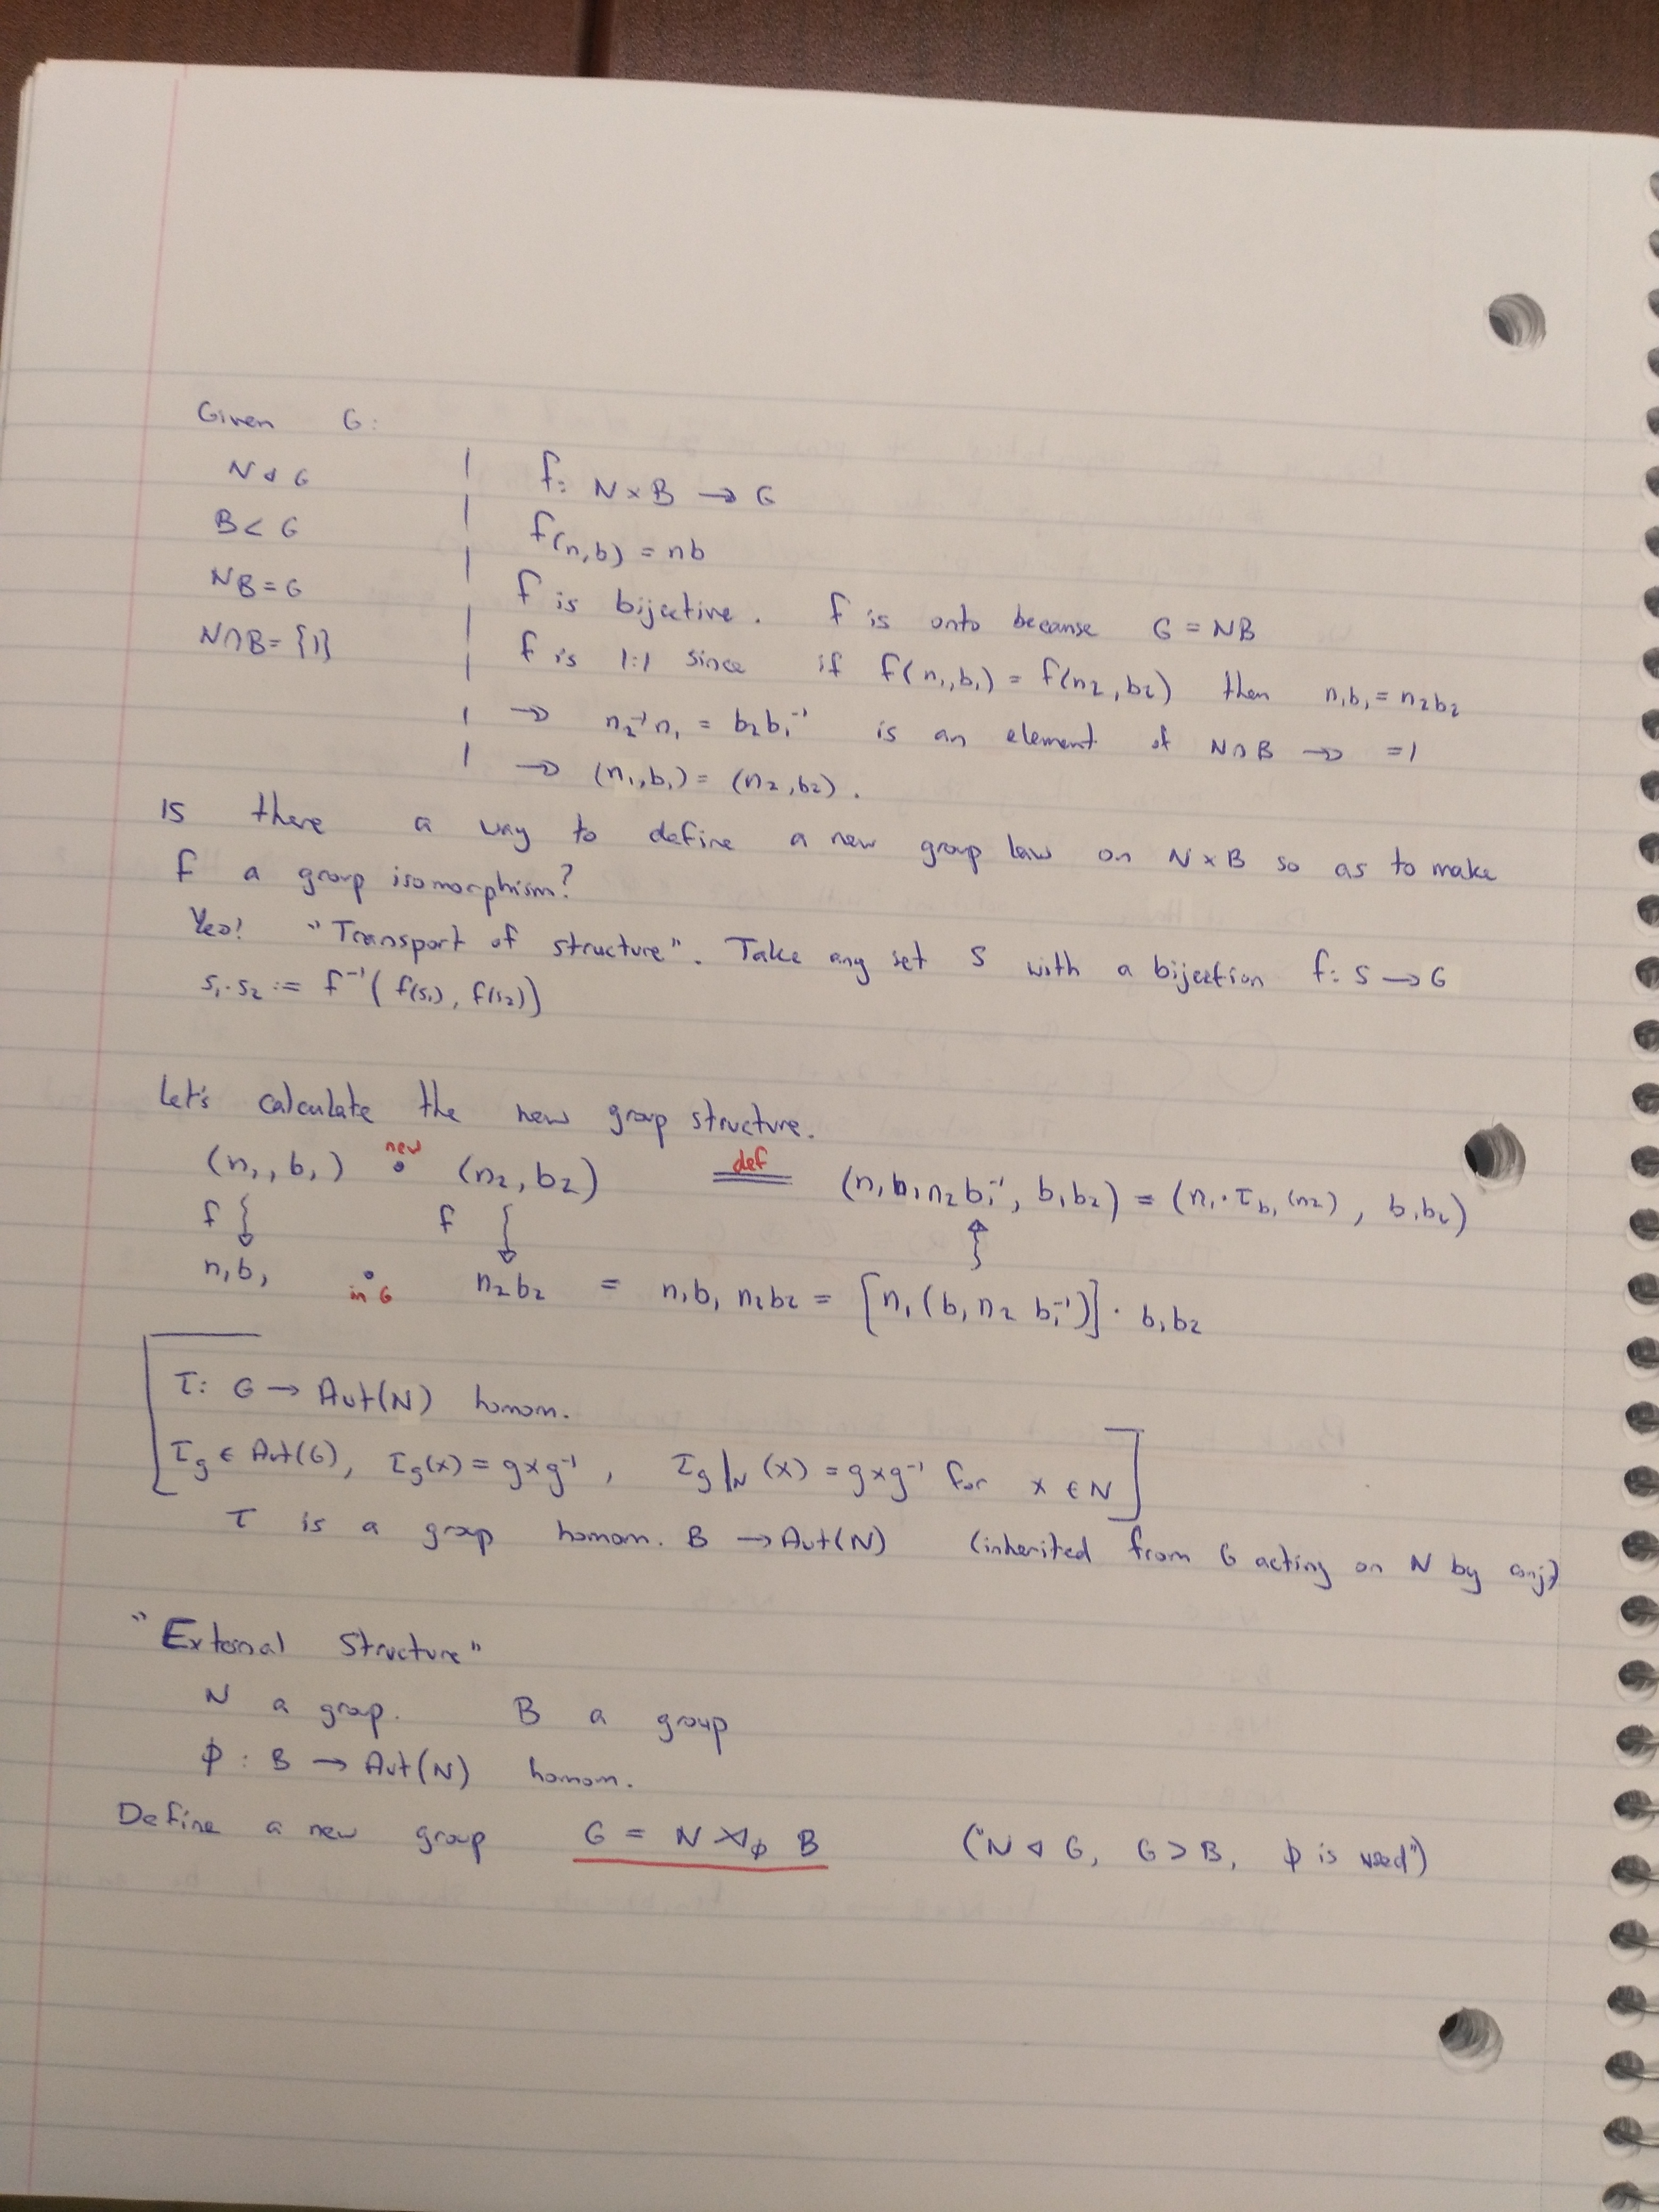 Given G:
N ◁ G
B < G
NB = G
N∩B = {1}
f: N × B → G
f(n,b) = nb
f is bijective. f is onto because G = NB
f is 1:1 since if f(n₁,b₁) = f(n₂,b₂) then n₁b₁ = n₂b₂
→ n₂⁻¹n₁ = b₂b₁⁻¹ is an element of N∩B → =1
→ (n₁,b₁) = (n₂,b₂).
Is there a way to define a new group law on N×B so as to make
f a group isomorphism?
Yes! "Transport of structure". Take any set S with a bijection f: S → G
s₁·s₂ := f⁻¹(f(s₁), f(s₂))
Let's calculate the new group structure.
(n₁, b₁) new • (n₂, b₂) def = (n₁b₁n₂b₁⁻¹, b₁b₂) = (n₁·τ_b₁(n₂), b₁b₂)
f ↓ f ↓ ↑
n₁b₁ • in G n₂b₂ = n₁b₁n₂b₂ = [n₁(b₁n₂b₁⁻¹)]·b₁b₂
τ: G → Aut(N) homom.
τ_g ∈ Aut(G), τ_g(x) = gxg⁻¹, τ_g|_N(x) = gxg⁻¹ for x ∈ N]
τ is a group homom. B → Aut(N) (inherited from G acting on N by conj)
"External Structure"
N a group. B a group
ϕ : B → Aut(N) homom.
Define a new group G = N ⋊_ϕ B ("N ◁ G, G > B, ϕ is used")